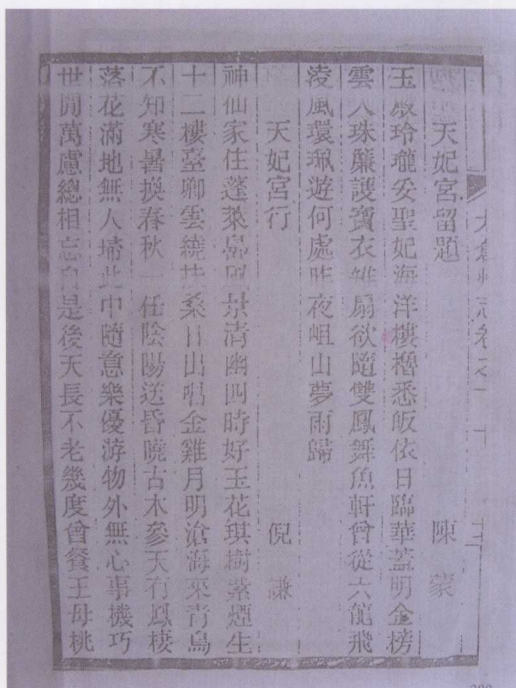 太倉州志卷之十 十二
天妃宮留題 陳蒙
玉殿玲瓏安聖妃海洋樓櫓悉皈依日臨華蓋明金榜
雲入珠簾護寶衣雉扇欲隨雙鳳舞魚軒曾從六龍飛
凌風環珮遊何處昨夜岨山夢雨歸
天妃宮行 倪謙
神仙家住蓬萊島風景清幽四時好玉花琪樹紫煙生
十二樓臺卿雲繞扶桑日出唱金雞月明滄海來青鳥
不知寒暑換春秋一任陰陽送昏曉古木參天有鳳棲
落花滿地無人埽此中隨意樂優游物外無心事機巧
世閒萬慮總相忘自是後天長不老幾度曾餐王母桃